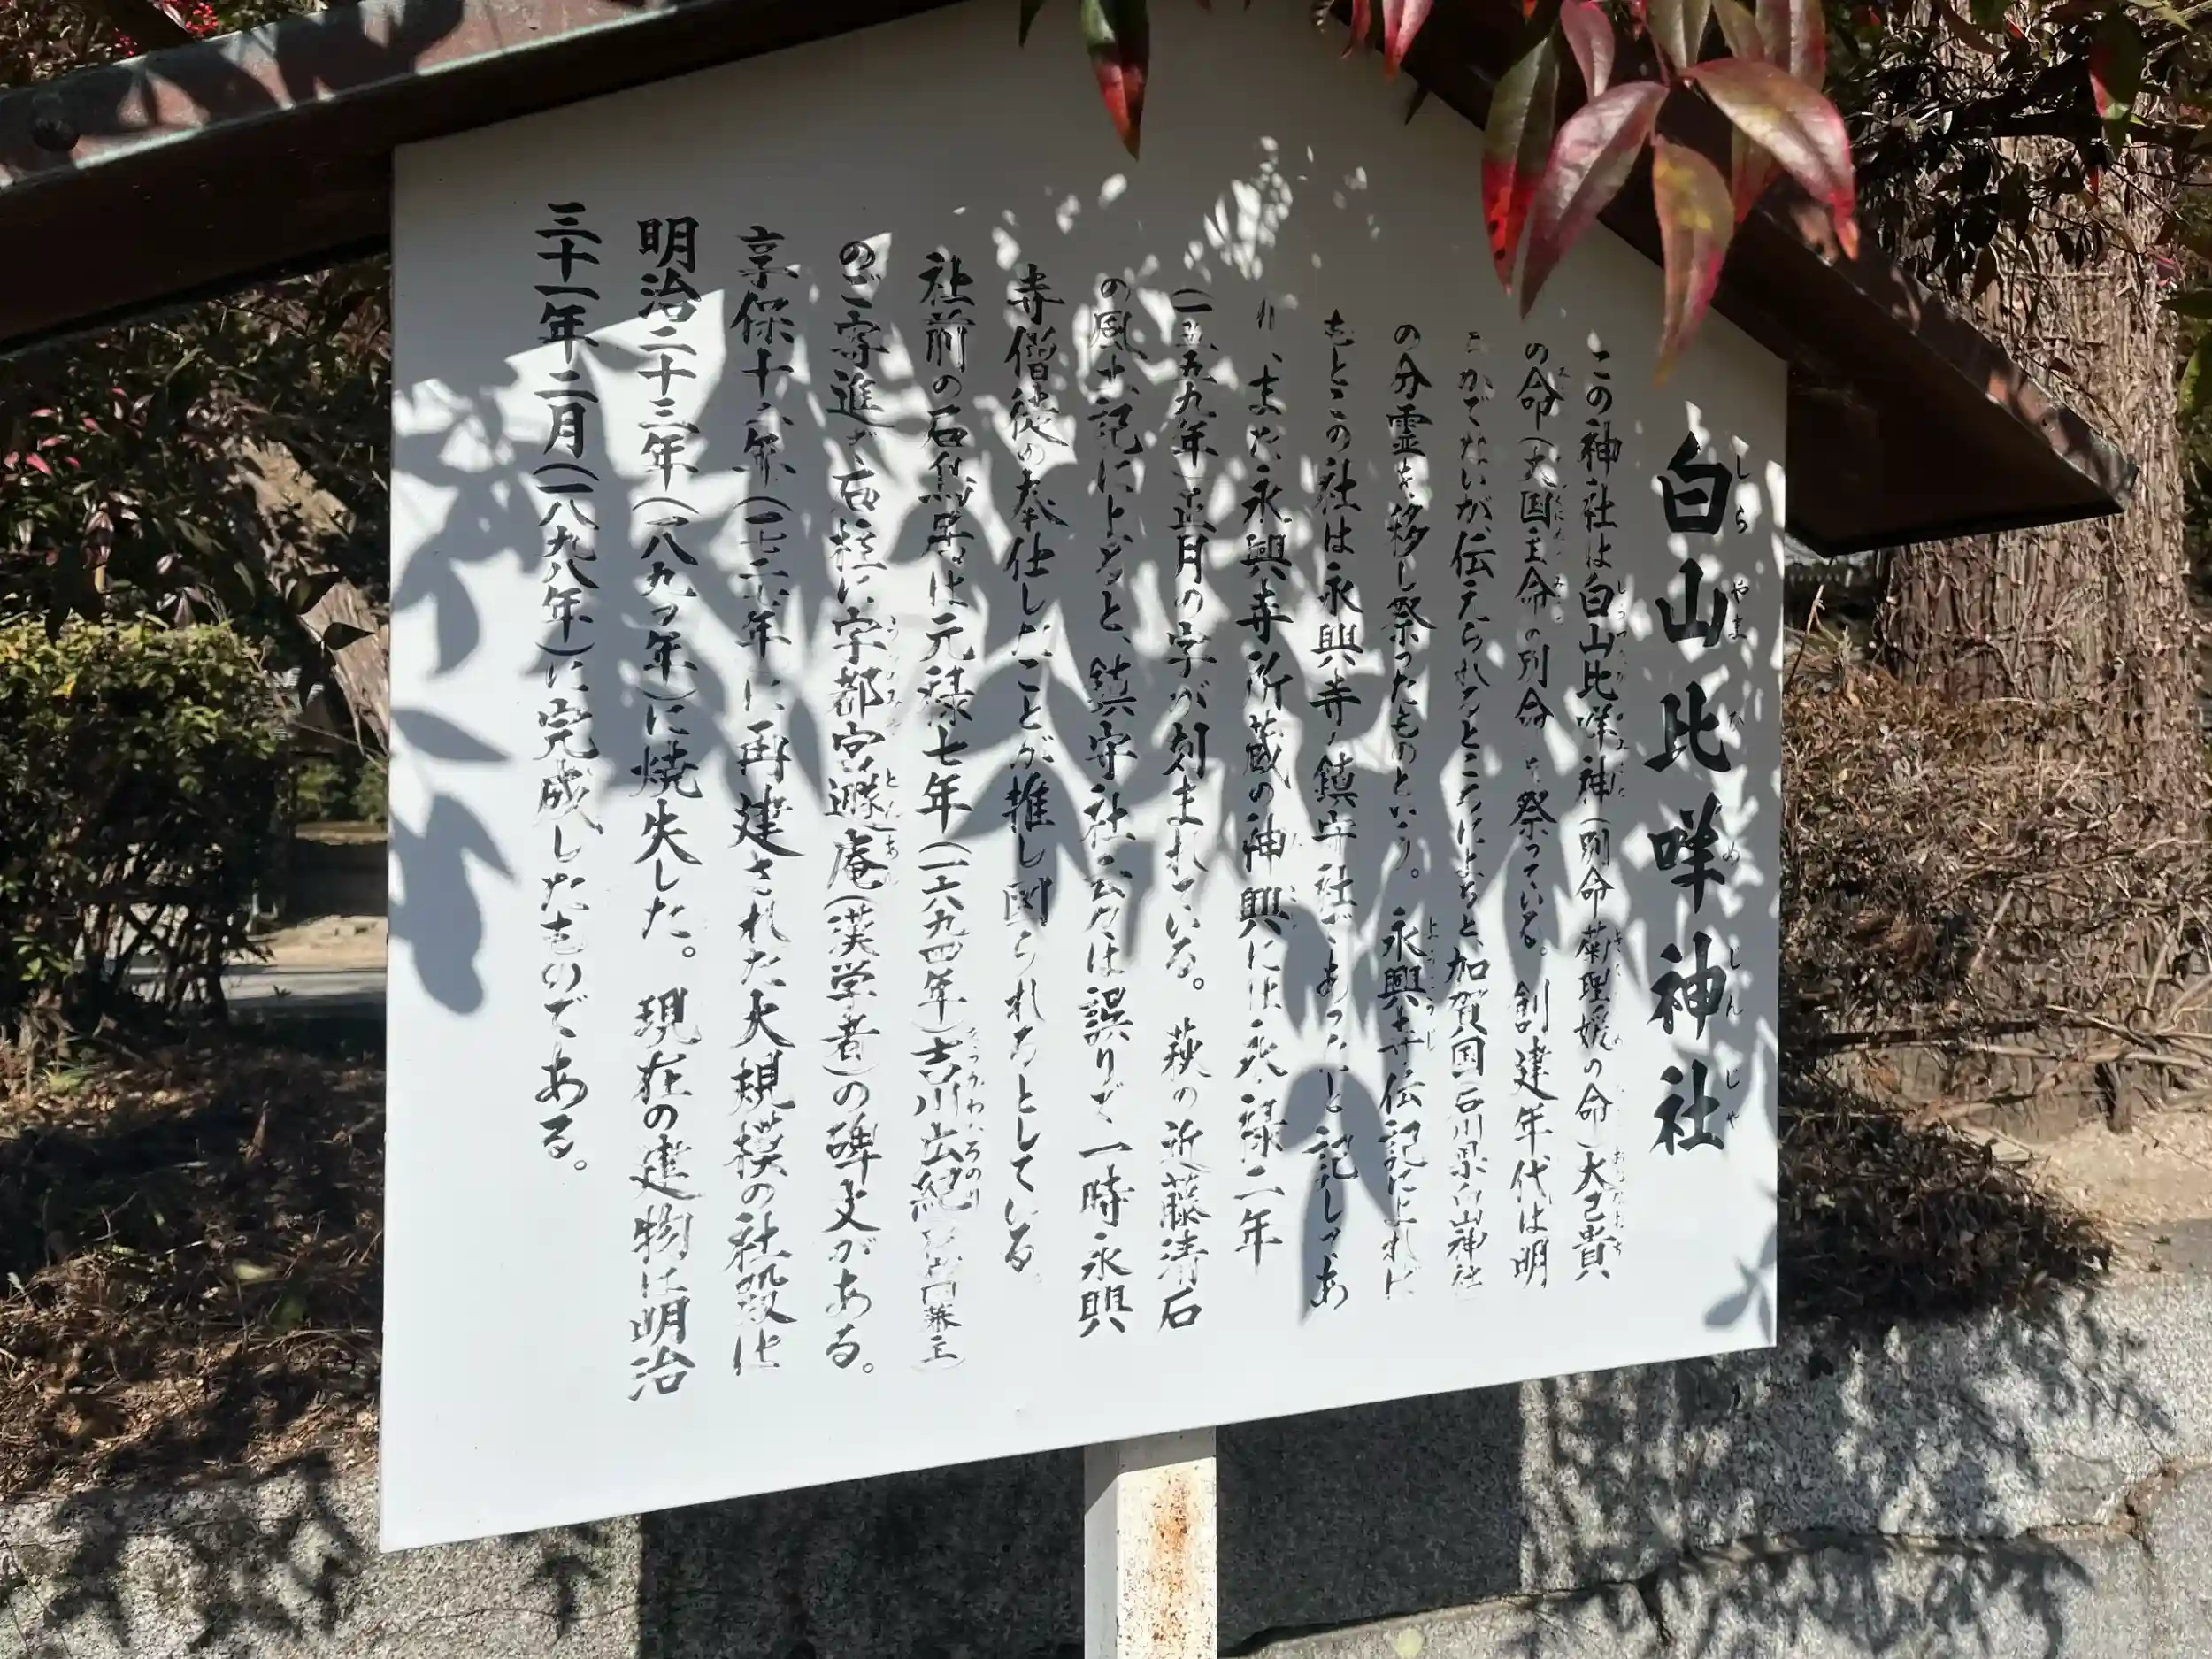 白山比咩神社
しらやまひめじんじゃ
この神社は白山比咩神(別命菊理媛の命)大己貴
の命(大国主命の別命)を祭っている。創建年代は明
らかでないが、伝えられるところによると、加賀国石川県白山神社
の分霊を移し祭ったものという。永興寺伝記によれば
もとこの社は永興寺ノ鎮守社であったと記してあ
り、また永興寺所蔵の神輿には永禄二年
(一五五九年)正月の字が刻まれている。萩の近藤清石
の風土記によると、鎮守社云々は誤りで一時永興
寺僧徒の奉仕したことが推し図られるとしている。
社前の石鳥居は元禄七年(一六九四年)吉川広紀(岩国藩主)
のご寄進で石柱に宇都宮遯庵(漢学者)の碑文がある。
享保十六年(一七三一年)に再建された大規模の社殿は
明治二十三年(一八九〇年)に焼失した。現在の建物は明治
三十一年二月(一八九八年)に完成したものである。